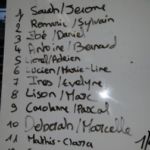 1 Sarah/Jerome
2 Romane/Sylvain
3 Zoé/Daniel
4 Antoine/Bernard
5 Lionel/Adrien
6 Lucien/Marie-Line
7 Ines/Evelyne
8 Lison/Marc
9 Carolanne/Pascal
10 Deborah/Marcelle
11 Mathis-Clara